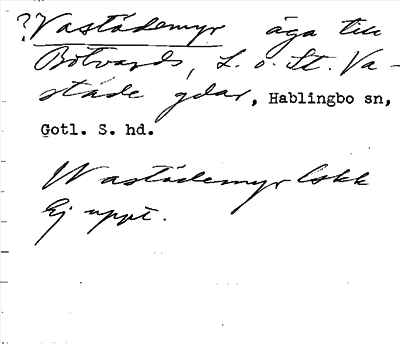 ? Vastädemyr äga till
Botvards, L. o. St. Va-
städe gdar, Hablingbo sn,
Gotl. S. hd.
Wastädemyr Lskk
Ej uppt.